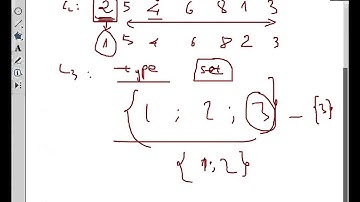 L2: 2 5 4 6 8 1 3
1 5 4 6 8 2 3
L3: type set
{1 ; 2 ; 3} - {3}
{1;2}